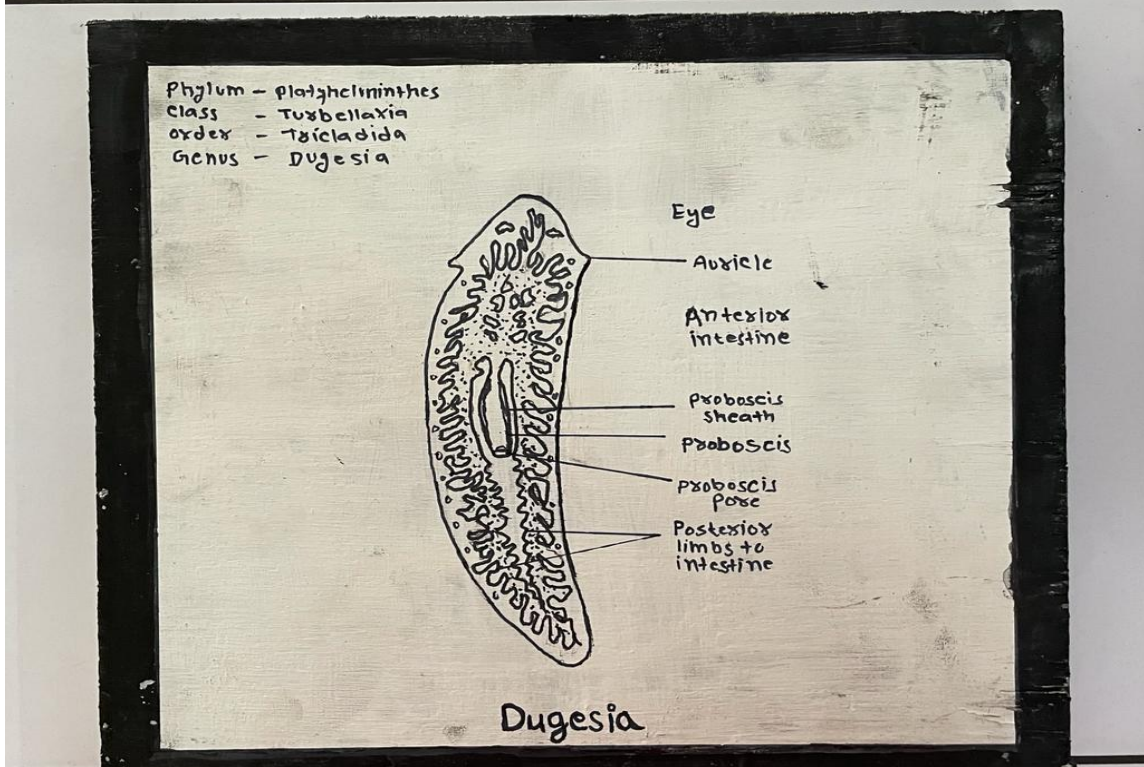 Phylum - Platyhelmininthes
Class - Turbellaria
Order - Tricladida
Genus - Dugesia
Eye
Auricle
Anterior
intestine
Proboscis
sheath
Proboscis
Proboscis
Pore
Posterior
limbs to
intestine
Dugesia